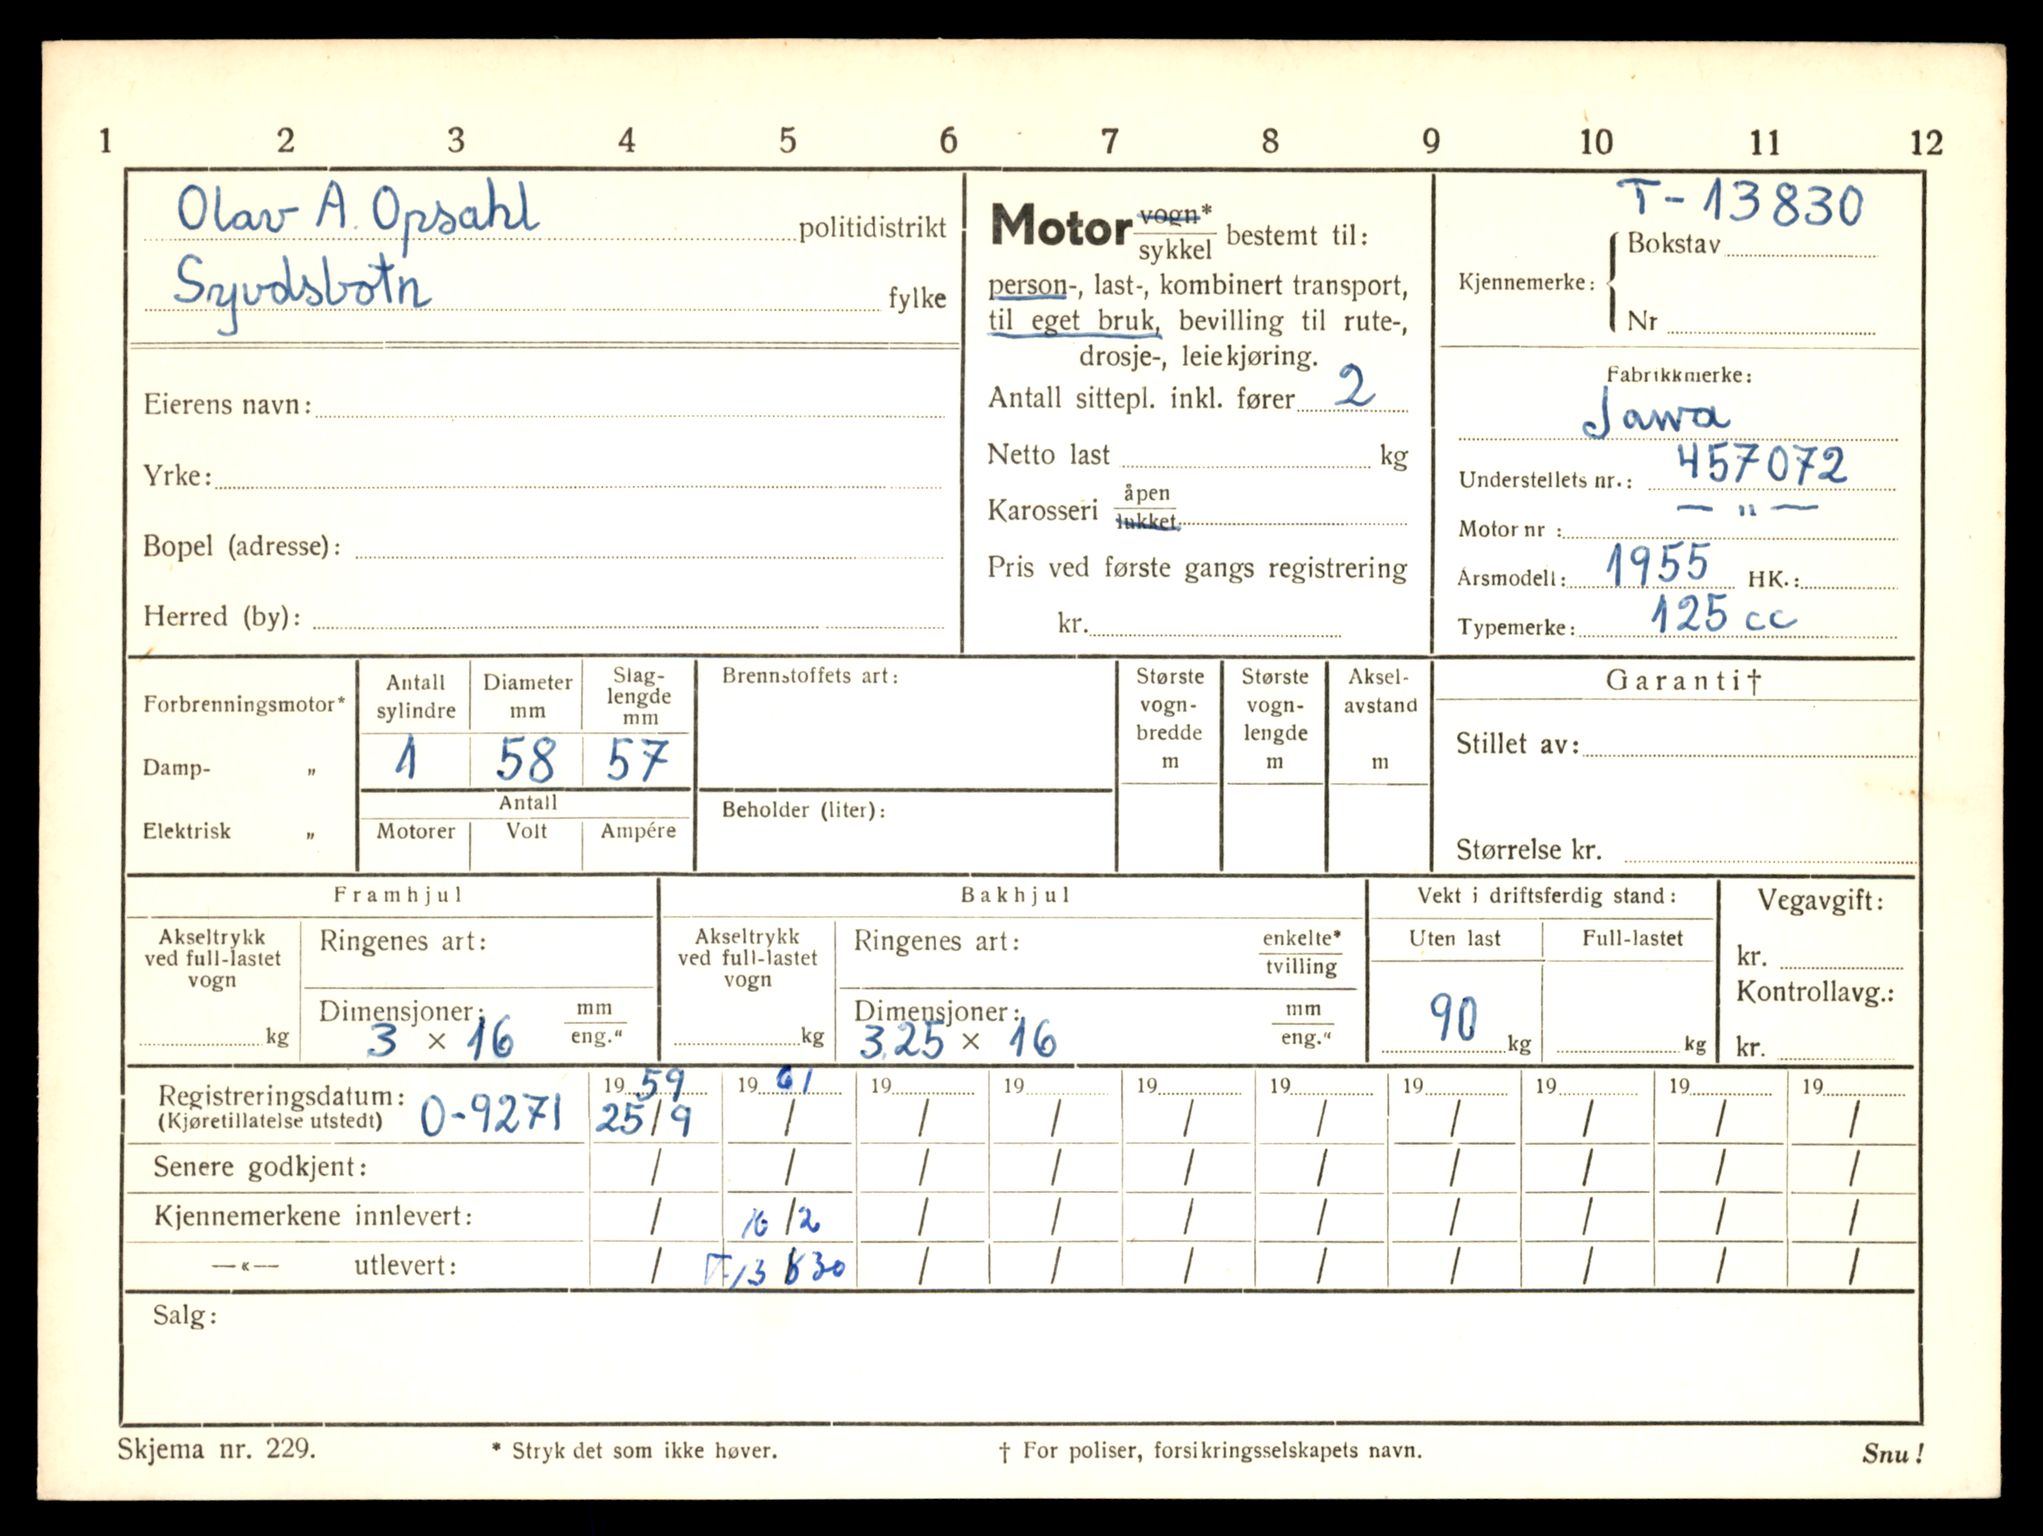 1 2 3 4 5 6 7 8 9 10 11 12
Olav A. Opsahl politidistrikt
Syvdsbotn fylke
Eierens navn:
Yrke:
Bopel (adresse):
Herred (by):
Motor vogn* sykkel bestemt til:
person-, last-, kombinert transport,
til eget bruk, bevilling til rute-,
drosje-, leiekjøring.
Antall sittepl. inkl. fører 2
Netto last kg
Karosseri åpen lukket
Pris ved første gangs registrering
kr.
T-13830
Kjennemerke: Bokstav
Nr
Fabrikkmerke:
Jawa
Understellets nr.: 457072
Motor nr : — " —
Årsmodell: 1955 HK.:
Typemerke: 125 cc
Forbrenningsmotor*
Damp- „
Elektrisk „
Antall sylindre Diameter mm Slag-lengde mm
1 58 57
Antall
Motorer Volt Ampére
Brennstoffets art:
Beholder (liter):
Største vogn-bredde m
Største vogn-lengde m
Aksel-avstand m
Garanti†
Stillet av:
Størrelse kr.
Framhjul
Akseltrykk ved full-lastet vogn
kg
Ringenes art:
Dimensjoner: mm eng."
3 × 16
Bakhjul
Akseltrykk ved full-lastet vogn
kg
Ringenes art: enkelte* tvilling
Dimensjoner: mm eng."
3.25 × 16
Vekt i driftsferdig stand:
Uten last Full-lastet
90 kg kg
Vegavgift:
kr.
Kontrollavg.:
kr.
Registreringsdatum: 19 59 19 61 19 19 19 19 19 19 19 19
(Kjøretillatelse utstedt) O-9271 25/9 / / / / / / / / /
Senere godkjent: / / / / / / / / / /
Kjennemerkene innlevert: / 16/2 / / / / / / / /
—«— utlevert: / T-13830 / / / / / / / /
Salg:
Skjema nr. 229. * Stryk det som ikke høver. † For poliser, forsikringsselskapets navn. Snu!